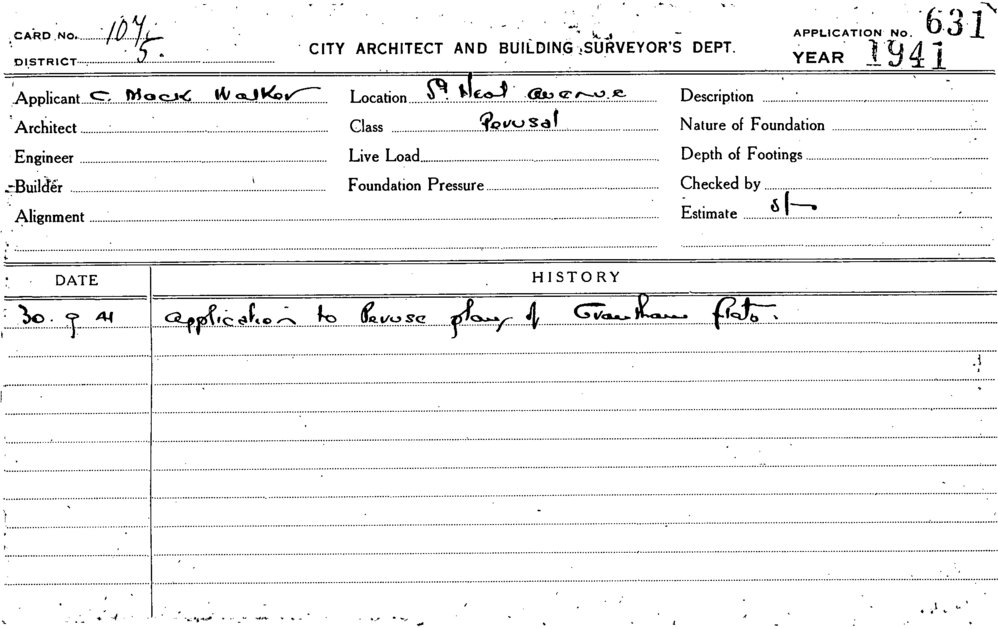 CARD NO. 107/5.
DISTRICT
CITY ARCHITECT AND BUILDING SURVEYOR'S DEPT.
APPLICATION NO. 631
YEAR 1941
Applicant C. Mack Walker Location St Neot avenue Description
Architect Class Perusal Nature of Foundation
Engineer Live Load Depth of Footings
Builder Foundation Pressure Checked by
Alignment Estimate 5/-
DATE HISTORY
30. 9 41 application to Peruse plans of Grantham flats.